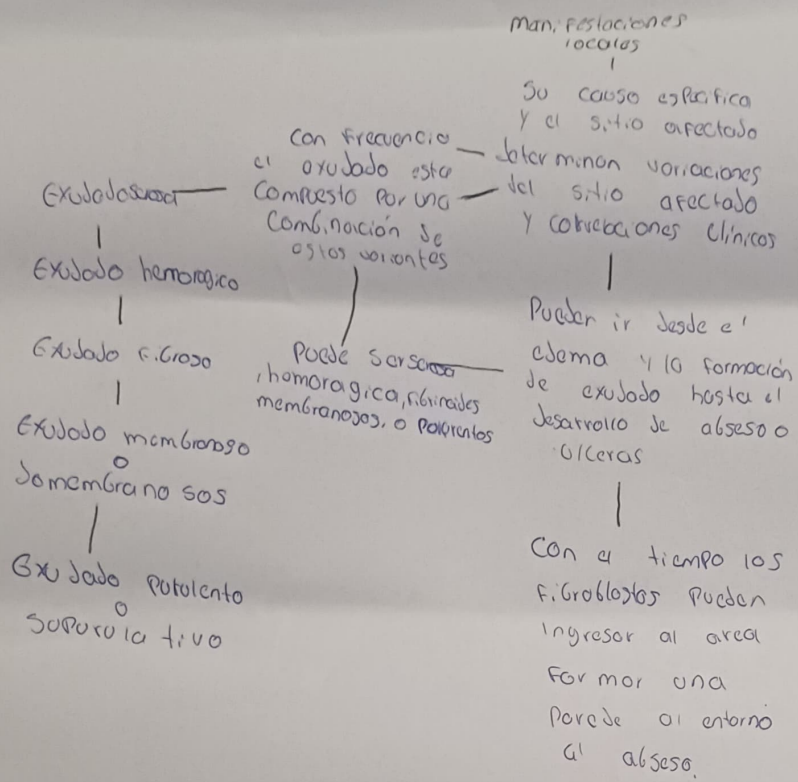 Manifestaciones
locales
Su causa especifica
y el sitio afectado
determinan variaciones
del sitio afectado
y clinicos
Pueden ir desde el
edema y la formación
de exudado hasta el
desarrollo de abseso o
ulceras
Con el tiempo los
fibroblastos pueden
ingresar al area
formar una
parede al entorno
al abseso.
Con frecuencia
el exudado esta
compuesto por una
combinación de
estos variantes
Puede ser
, hemoragica, fibrinoides
membranosos, o polorentos
Exudado
Exudado hemoragico
Exudado fibroso
Exudado membranoso
o
somembrano sos
Exudado purolento
o
supurula tivo